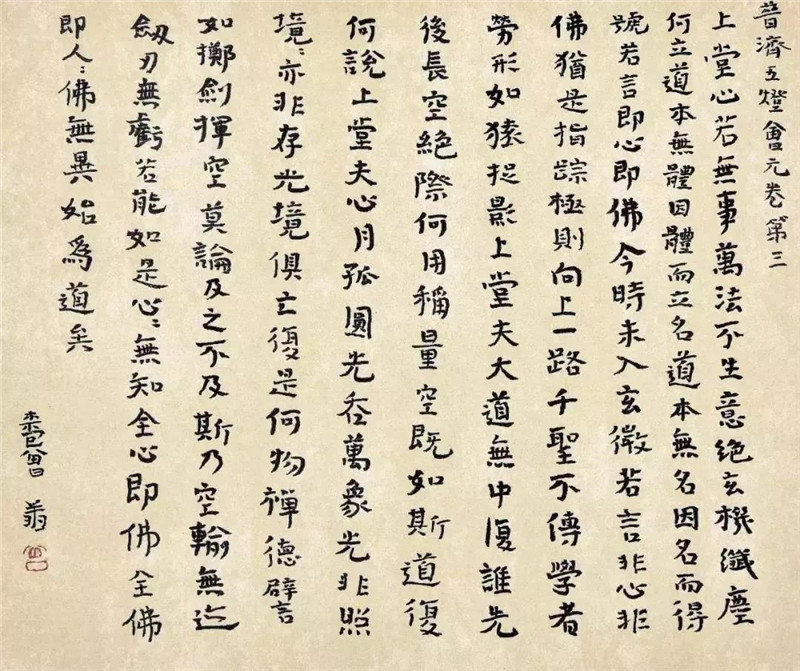 普濟五燈會元卷第三
上堂心若無事萬法不生意絕玄機纖塵
何立道本無體因體而立名道本無名因名而得
號若言即心即佛今時未入玄微若言非心非
佛猶是指踪極則向上一路千聖不傳學者
勞形如猿捉影上堂夫大道無中復誰先
後長空絕際何用稱量空既如斯道復
何說上堂夫心月孤圓光吞萬象光非照
境〻亦非存光境俱亡復是何物禪德譬言
如擲劍揮空莫論及之不及斯乃空輪無迹
劔刃無虧若能如是心〻無知全心即佛全佛
即人〻佛無異始爲道矣
曾翁